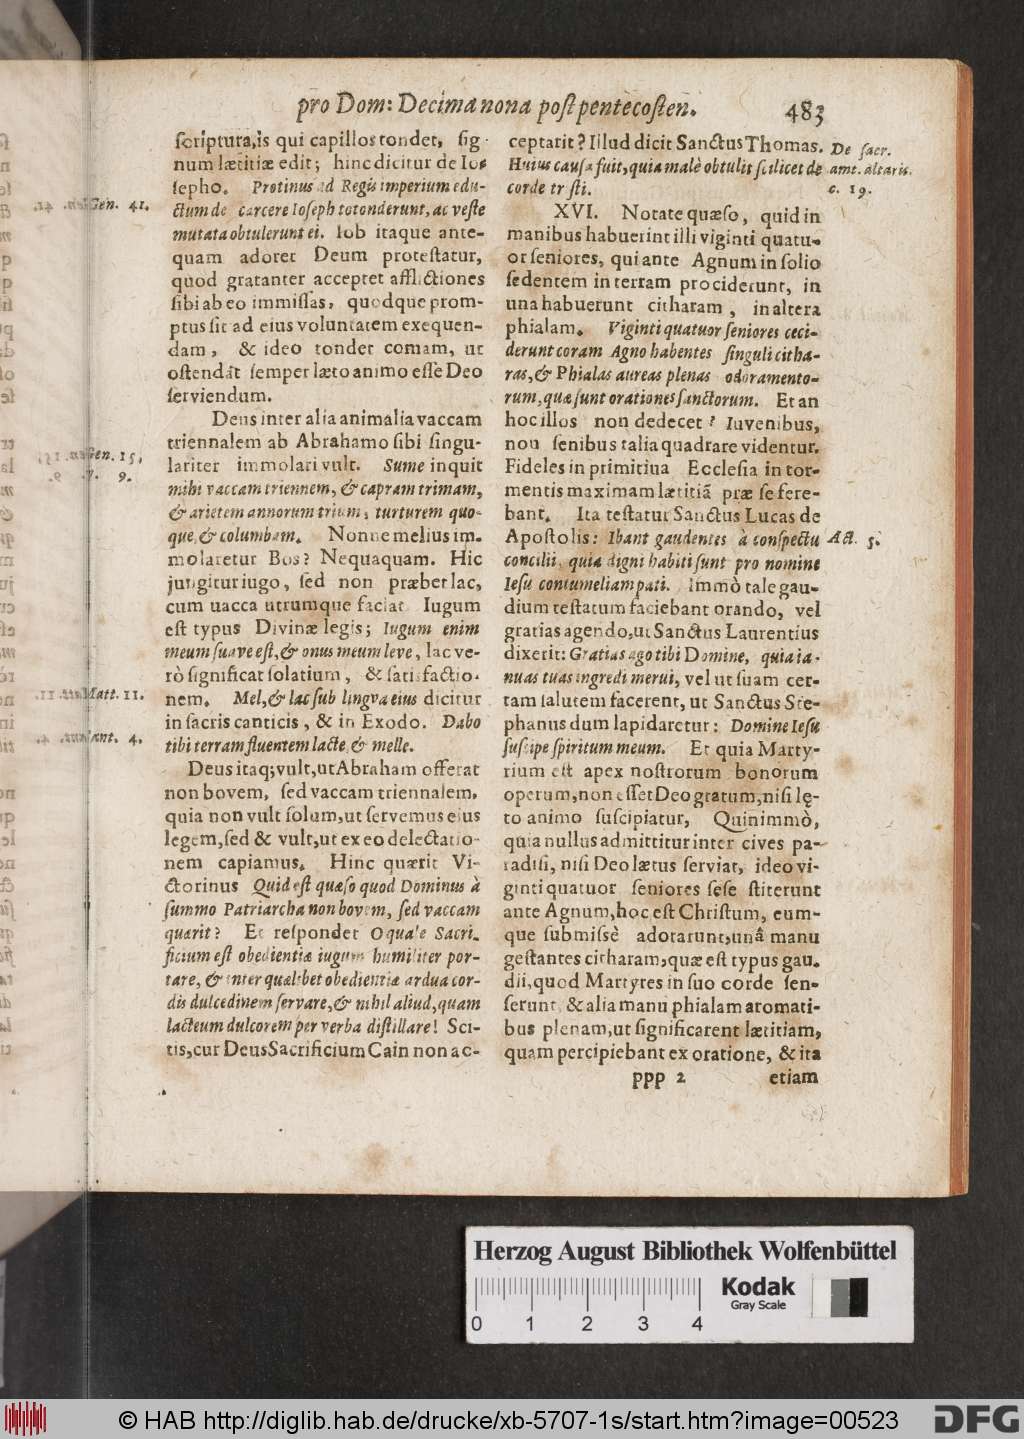 pro Dom: Decima nona post pentecosten.
483
scriptura, is qui capillos tondet, sig-
num lætitiæ edit; hinc dicitur de Io-
sepho. Protinus ad Regis imperium edu-
Gen. 41.
ctum de carcere Ioseph totonderunt, ac veste
mutata obtulerunt ei. Iob itaque ante-
quam adoret Deum protestatur,
quod gratanter acceptet afflictiones
sibi ab eo immissas, quodque prom-
ptus sit ad eius voluntatem exequen-
dam, & ideo tondet comam, ut
ostendat semper læto animo esse Deo
serviendum.
Deus inter alia animalia vaccam
triennalem ab Abrahamo sibi singu-
Gen. 15,
lariter immolari vult. Sume inquit
v. 9.
mihi vaccam triennem, & capram trimam,
& arietem annorum trium, turturem quo-
que, & columbam. Nonne melius im-
molaretur Bos? Nequaquam. Hic
jungitur iugo, sed non præbet lac,
cum uacca utrumque faciat. Iugum
est typus Divinæ legis; Iugum enim
meum suave est, & onus meum leve, lac ve-
rò significat solatium, & satisfactio-
Matt. 11.
nem. Mel, & lac sub lingva eius dicitur
in sacris canticis, & in Exodo. Dabo
Cant. 4.
tibi terram fluentem lacte & melle.
Deus itaq; vult, ut Abraham offerat
non bovem, sed vaccam triennalem,
quia non vult solum, ut servemus eius
legem, sed & vult, ut ex eo delectatio-
nem capiamus. Hinc quærit Vi-
ctorinus Quid est quæso quod Dominus à
summo Patriarcha non bovem, sed vaccam
quærit? Et respondet O quale Sacri-
ficium est obedientiæ iugum humiliter por-
tare, & inter qualibet obedientiæ ardua cor-
dis dulcedinem servare, & nihil aliud, quam
lacteum dulcorem per verba distillare! Sci-
tis, cur Deus Sacrificium Cain non ac-
ceptarit? Illud dicit Sanctus Thomas.
De sacr.
Huius causa fuit, quia malè obtulit scilicet de
amt. altaris.
corde tristi.
c. 19.
XVI. Notate quæso, quid in
manibus habuerint illi viginti quatu-
or seniores, qui ante Agnum in solio
sedentem in terram prociderunt, in
una habuerunt citharam, in altera
phialam. Viginti quatuor seniores ceci-
derunt coram Agno habentes singuli citha-
ras, & Phialas aureas plenas odoramento-
rum, quæ sunt orationes sanctorum. Et an
hoc illos non dedecet? Iuvenibus,
non senibus talia quadrare videntur.
Fideles in primitiua Ecclesia in tor-
mentis maximam lætitiã præ se fere-
bant. Ita testatur Sanctus Lucas de
Apostolis: Ibant gaudentes à conspectu
Act. 5.
concilii, quia digni habiti sunt pro nomine
Iesu contumeliam pati. Immò tale gau-
dium testatum faciebant orando, vel
gratias agendo, ut Sanctus Laurentius
dixerit: Gratias ago tibi Domine, quia ia-
nuas tuas ingredi merui, vel ut suam cer-
tam salutem facerent, ut Sanctus Ste-
phanus dum lapidaretur: Domine Iesu
suscipe spiritum meum. Et quia Marty-
rium est apex nostrorum bonorum
operum, non esset Deo gratum, nisi lę-
to animo suscipiatur, Quinimmò,
quia nullus admittitur inter cives pa-
radisi, nisi Deo lætus serviat, ideo vi-
ginti quatuor seniores sese stiterunt
ante Agnum, hoc est Christum, eum-
que submissè adorarunt, unâ manu
gestantes citharam, quæ est typus gau-
dii, quod Martyres in suo corde sen-
serunt, & alia manu phialam aromati-
bus plenam, ut significarent lætitiam,
quam percipiebant ex oratione, & ita
ppp 2
etiam
Herzog August Bibliothek Wolfenbüttel
Kodak
Gray Scale
0 1 2 3 4
© HAB http://diglib.hab.de/drucke/xb-5707-1s/start.htm?image=00523
DFG